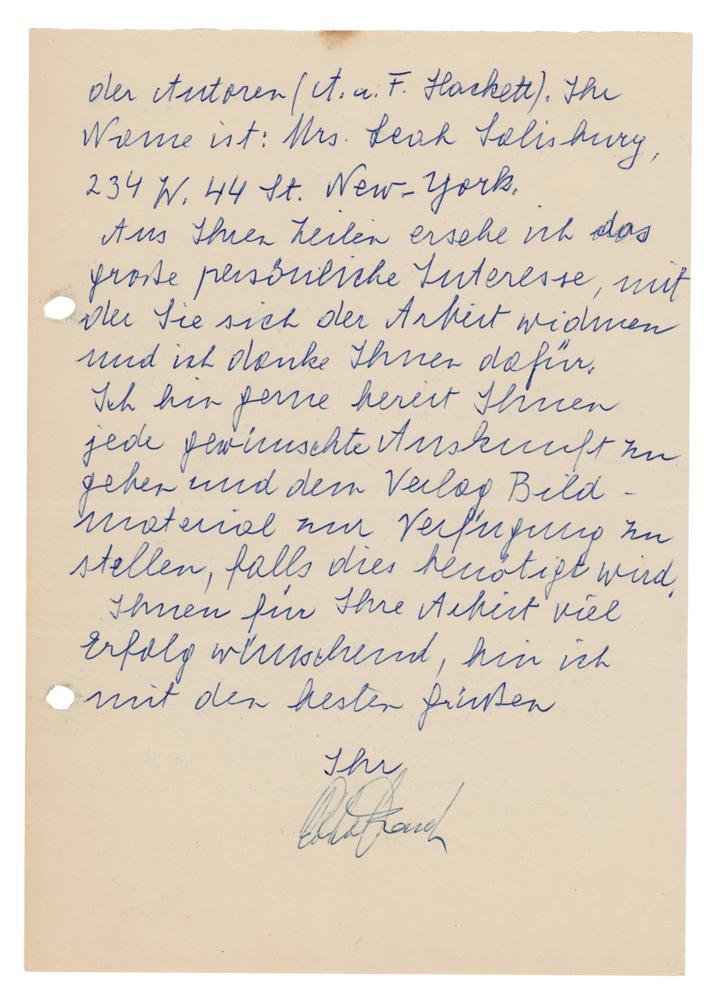 der Autoren (A. u. F. Hackett). Ihr
Name ist: Mrs. Leah Salisbury,
234 W. 44 St. New-York.
Aus Ihren Zeilen ersehe ich das
große persönliche Interesse, mit
der Sie sich der Arbeit widmen
und ich danke Ihnen dafür.
Ich bin gerne bereit Ihnen
jede gewünschte Auskunft zu
geben und dem Verlag Bild-
material zur Verfügung zu
stellen, falls dies benötigt wird.
Ihnen für Ihre Arbeit viel
Erfolg wünschend, bin ich
mit den besten Grüßen
Ihr
Otto Frank